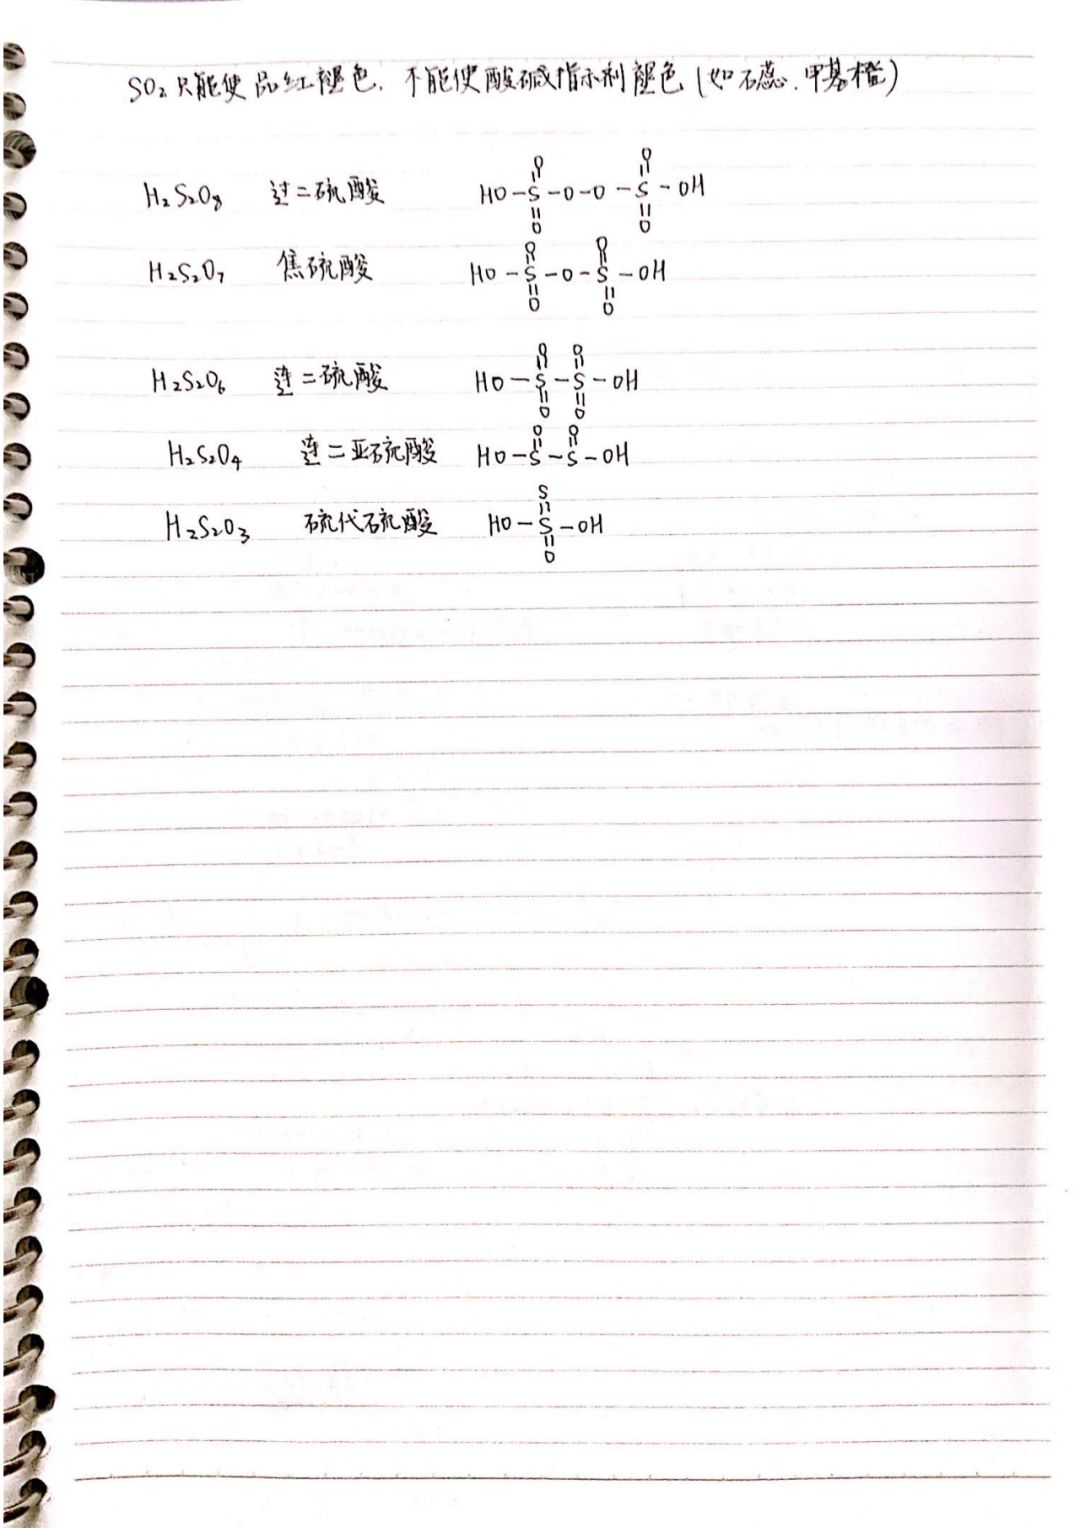 SO₂只能使品红褪色.不能使酸碱指示剂褪色(如石蕊.甲基橙)
H₂S₂O₈ 过二硫酸 HO-S(=O)(=O)-O-O-S(=O)(=O)-OH
H₂S₂O₇ 焦硫酸 HO-S(=O)(=O)-O-S(=O)(=O)-OH
H₂S₂O₆ 连二硫酸 HO-S(=O)(=O)-S(=O)(=O)-OH
H₂S₂O₄ 连二亚硫酸 HO-S(=O)-S(=O)-OH
H₂S₂O₃ 硫代硫酸 HO-S(=S)(=O)-OH